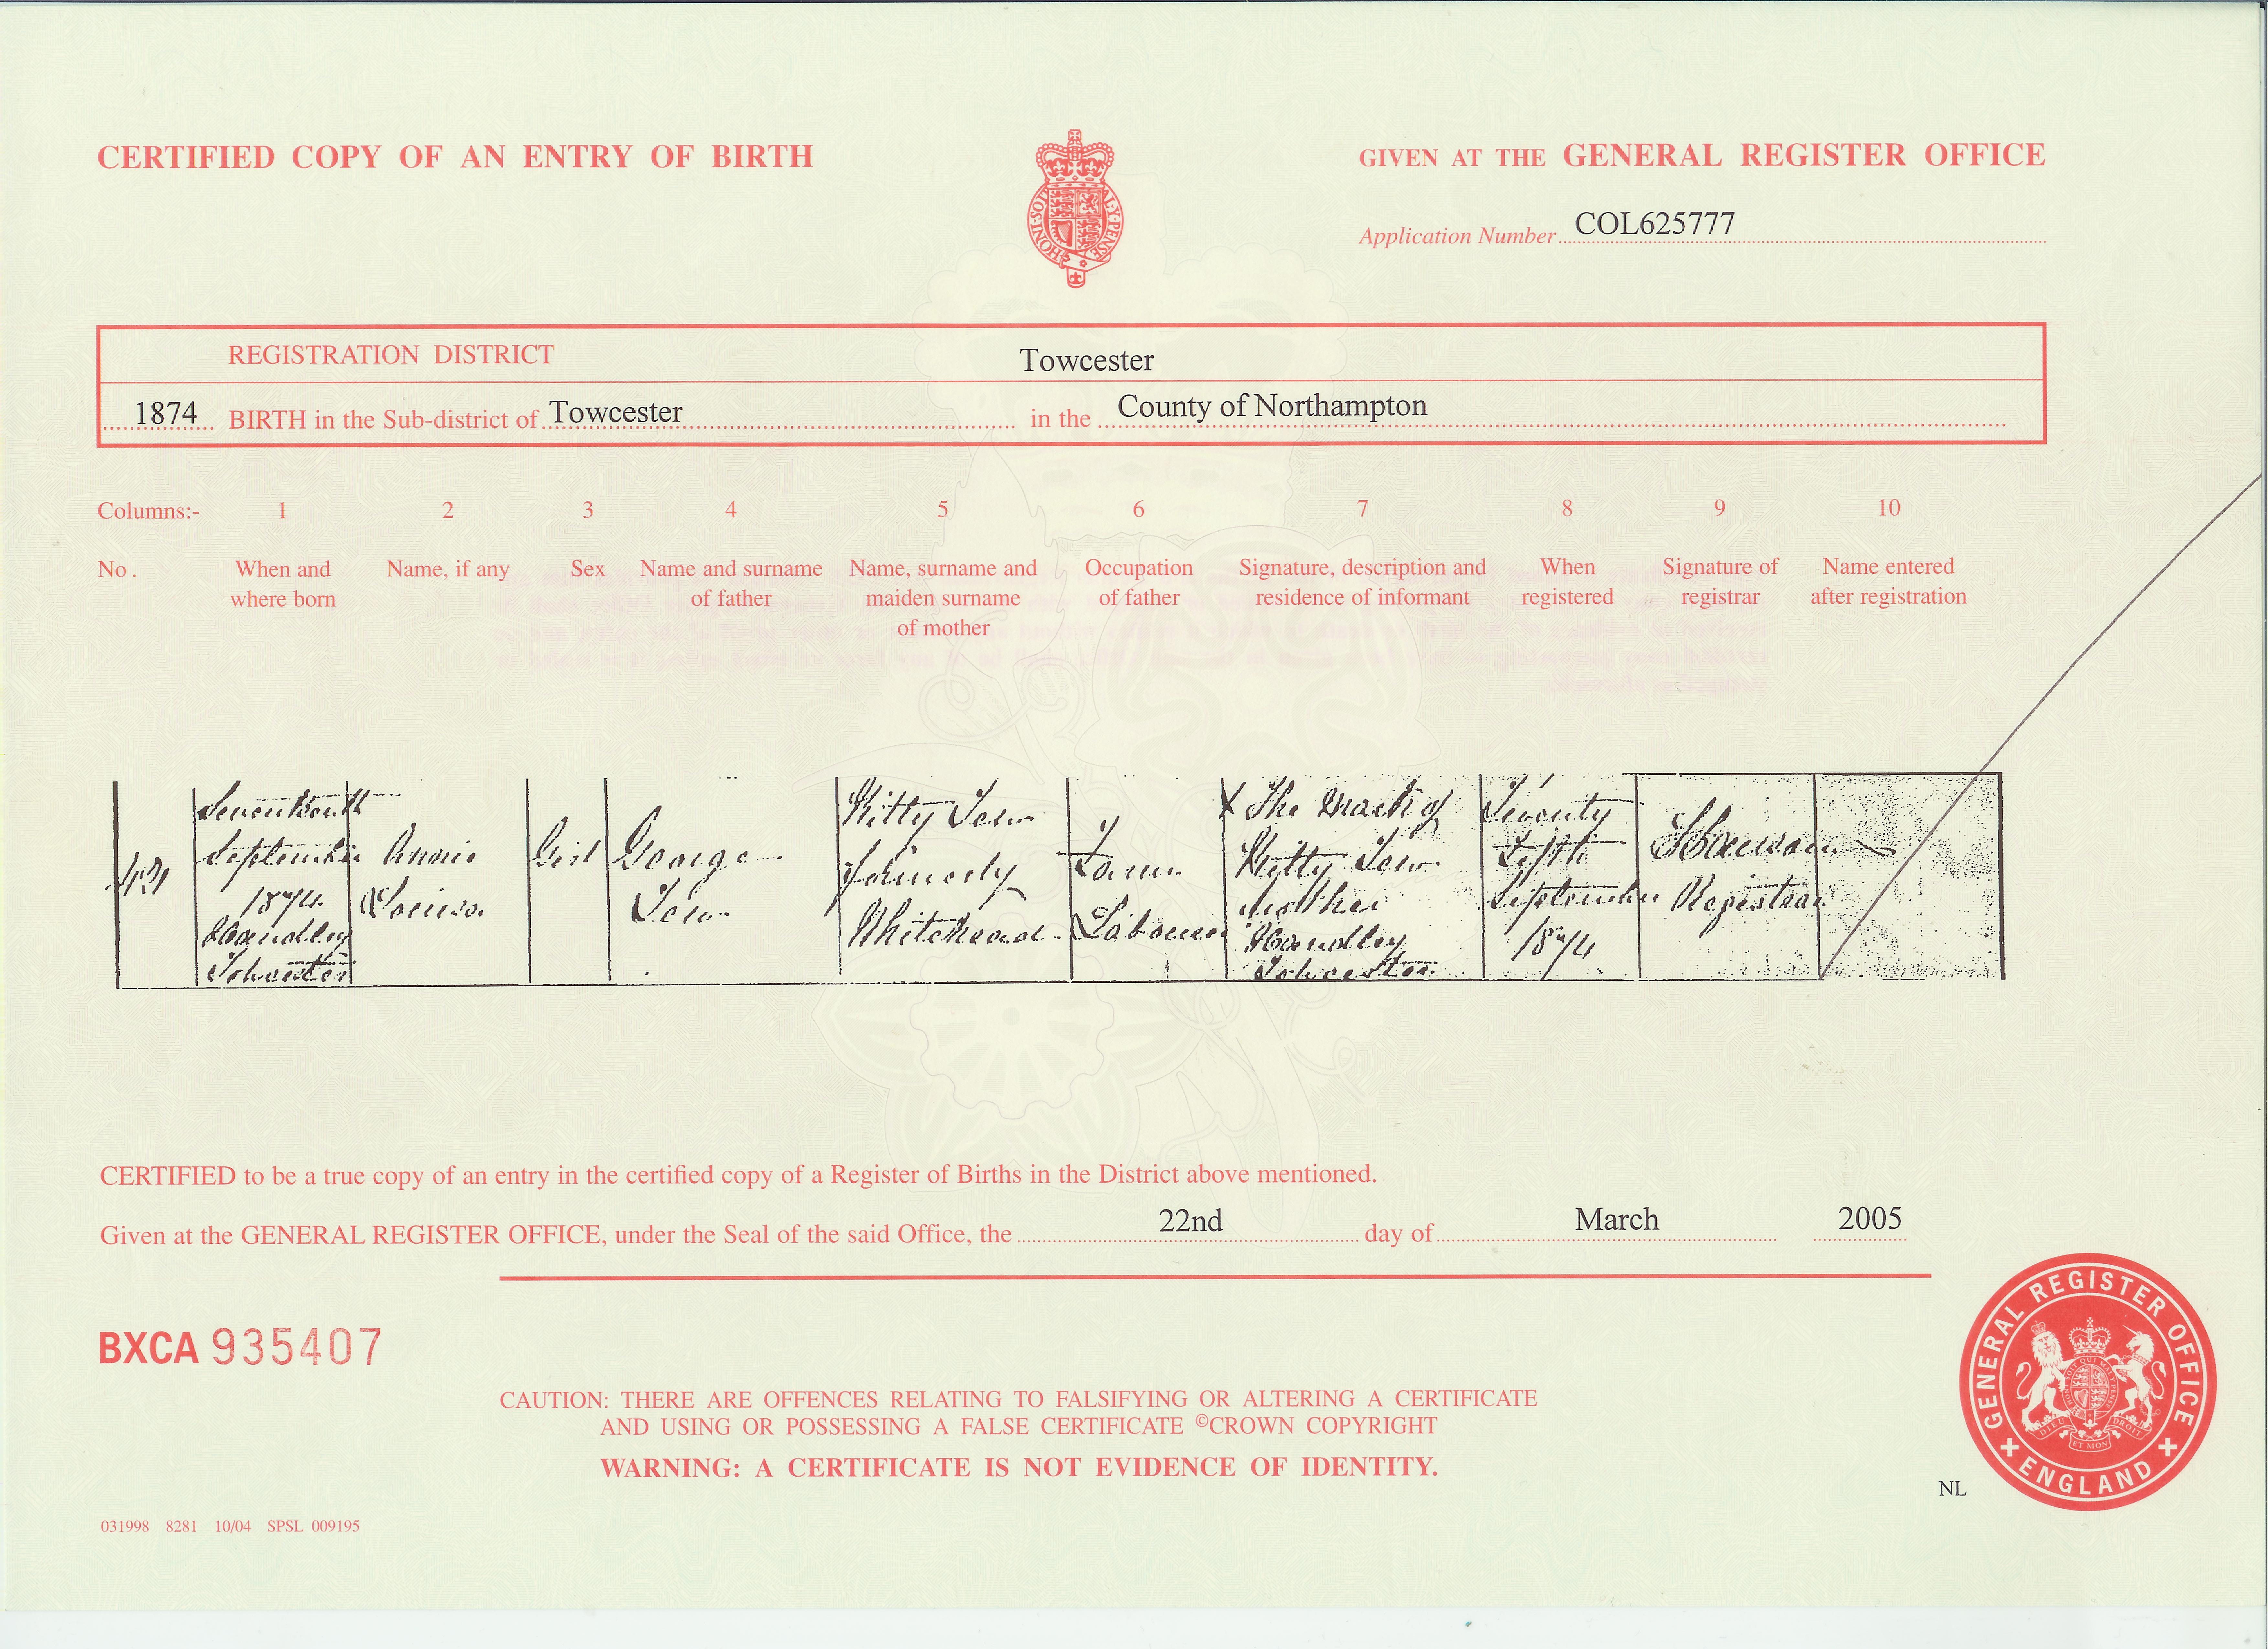 CERTIFIED COPY OF AN ENTRY OF BIRTH
GIVEN AT THE GENERAL REGISTER OFFICE
HONI·SOIT AL·Y·PENSE
Application Number COL625777
REGISTRATION DISTRICT Towcester
1874 BIRTH in the Sub-district of Towcester in the County of Northampton
Columns:- 1 2 3 4 5 6 7 8 9 10
No. When and where born
Name, if any
Sex
Name and surname of father
Name, surname and maiden surname of mother
Occupation of father
Signature, description and residence of informant
When registered
Signature of registrar
Name entered after registration
Seventeenth
September
1874
Handley
Towcester
Annie
Louisa
Girl
George
Tew
Kitty Tew
formerly
Whitehead
Farm
Labourer
X The Mark of
Kitty Tew
Mother
Handley
Towcester
Twenty
Fifth
September
1874
Registrar
CERTIFIED to be a true copy of an entry in the certified copy of a Register of Births in the District above mentioned.
Given at the GENERAL REGISTER OFFICE, under the Seal of the said Office, the 22nd day of March 2005
BXCA 935407
CAUTION: THERE ARE OFFENCES RELATING TO FALSIFYING OR ALTERING A CERTIFICATE
AND USING OR POSSESSING A FALSE CERTIFICATE ©CROWN COPYRIGHT
WARNING: A CERTIFICATE IS NOT EVIDENCE OF IDENTITY.
GENERAL REGISTER OFFICE
ENGLAND
DIEU ET MON DROIT
NL
031998 8281 10/04 SPSL 009195